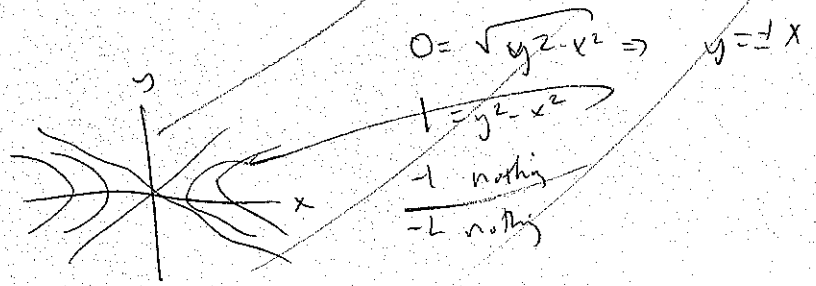 0 = √y²-x² ⇒ y = ± x
1 = y²-x²
-1 nothing
-2 nothing
y
x